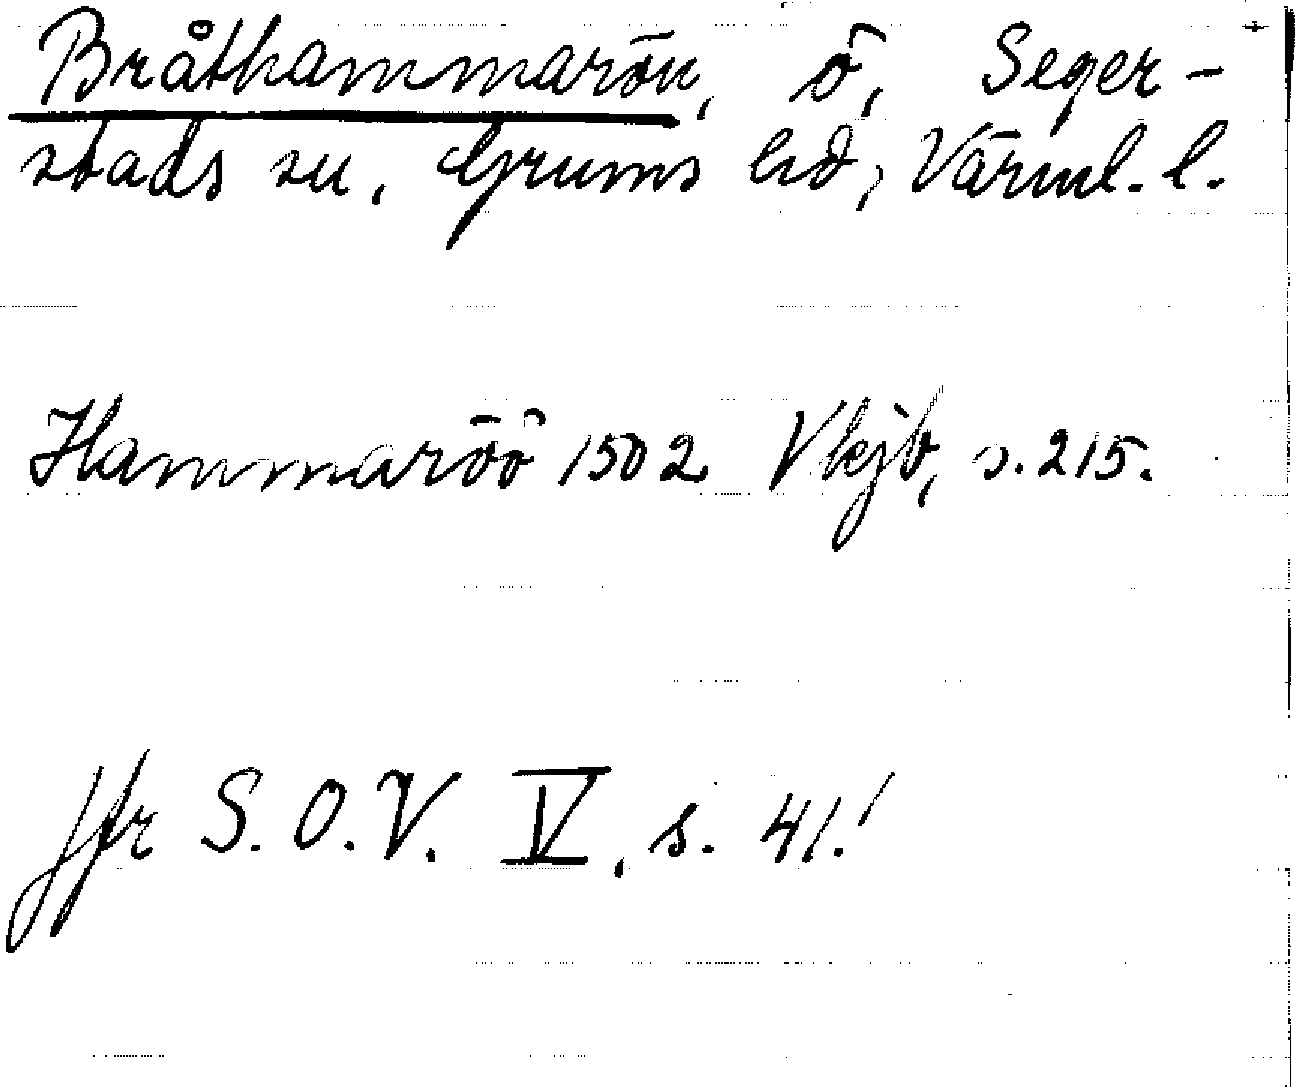 Bråthammarön, ö, Seger-
stads sn, Grums hd, Värml. l.
Hammaröö 1502 Vkjb, s. 215.
Jfr S.O.V. V, s. 41.